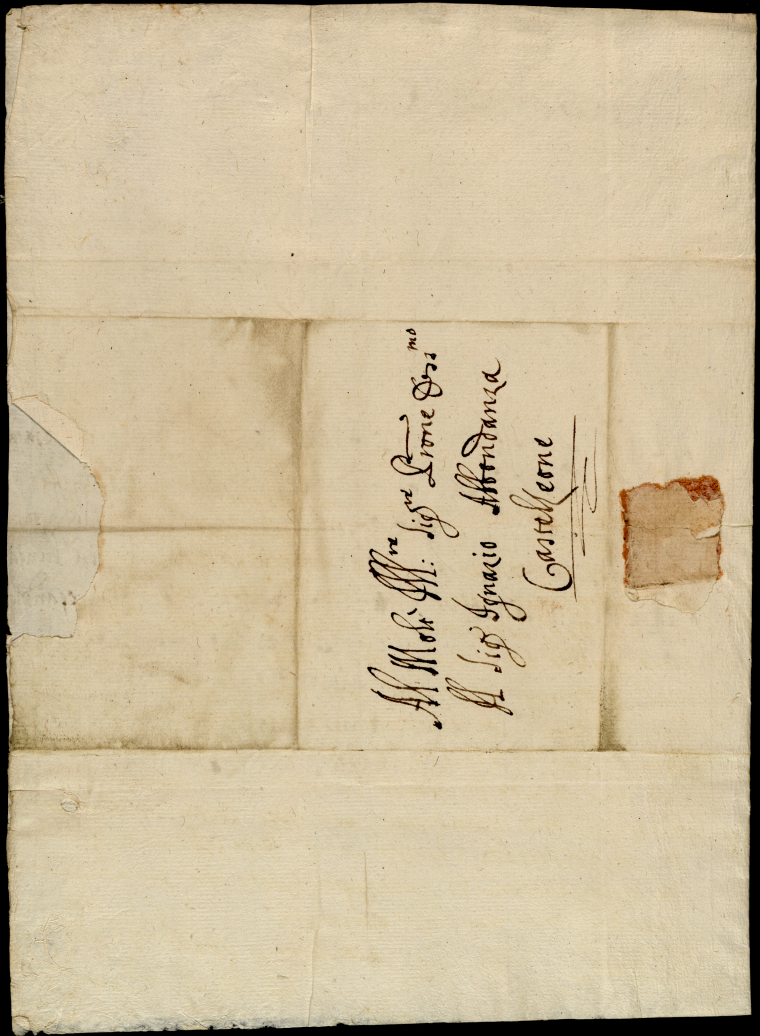 All Molt' Ill:re Sig:re Prone Oss:mo
Il Sig:r Ignazio Abbondanza
Castelleone